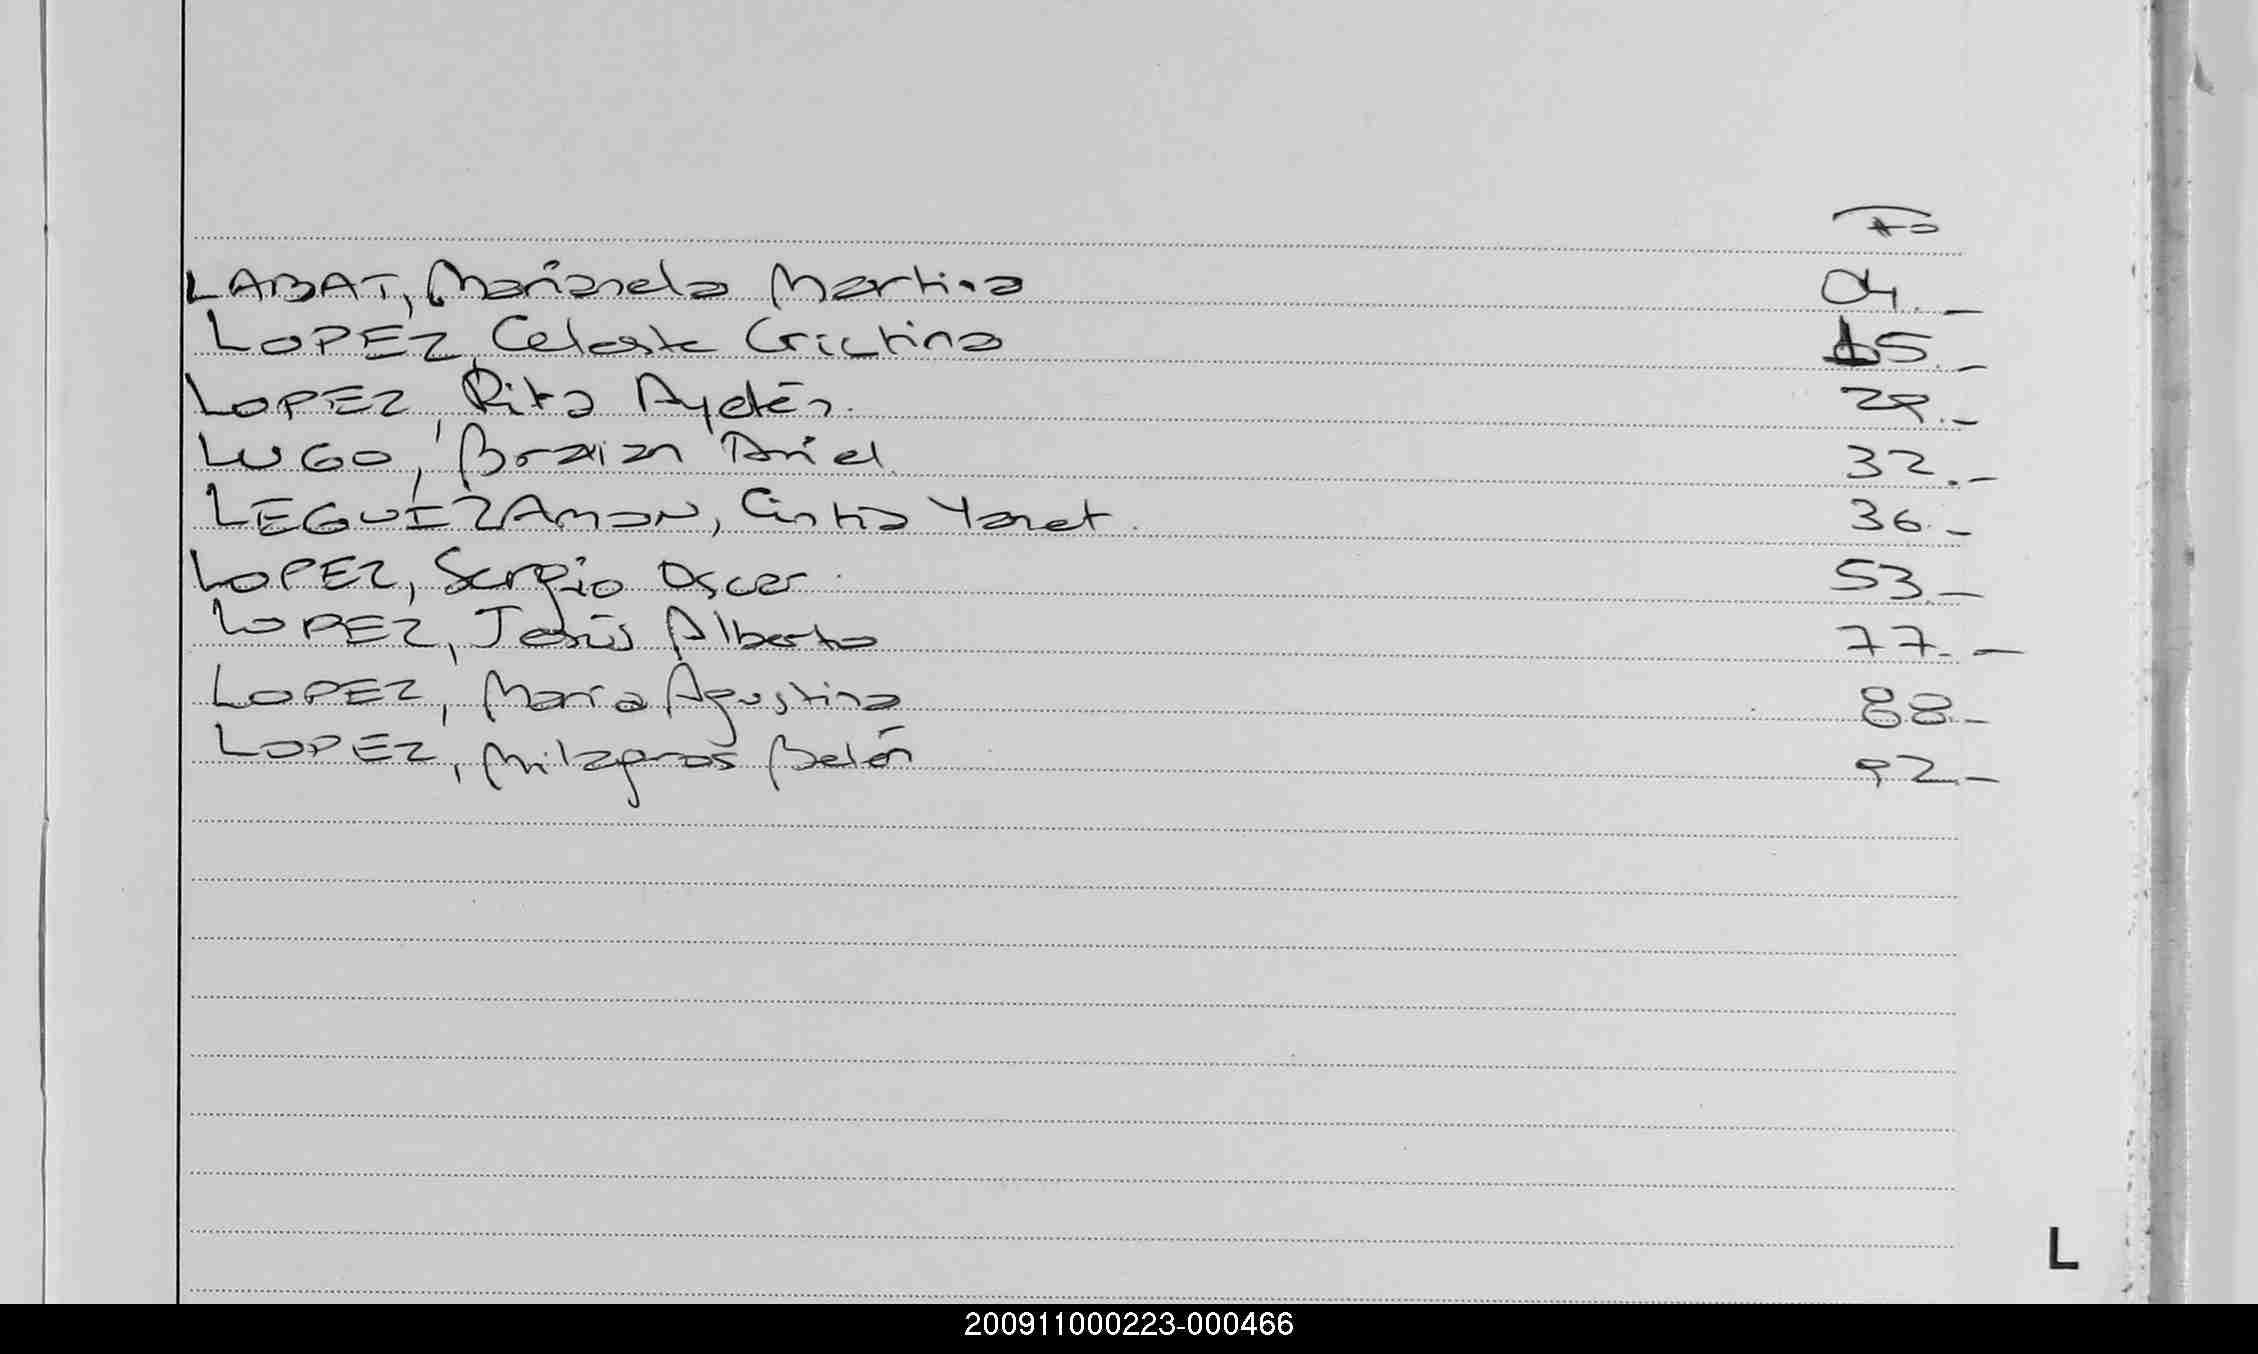 Fo
LABAT, Marianela Martina 04.-
LOPEZ, Celeste Cristina 15.-
LOPEZ, Rita Aydén. 29.-
LUGO, Braian Ariel. 32.-
LEGUIZAMON, Cintia Yanet. 36.-
LOPEZ, Sergio Oscar. 53.-
LOPEZ, Jesús Alberto 77.-
LOPEZ, María Agustina 88.-
LOPEZ, Milagros Belén 92.-
L
200911000223-000466